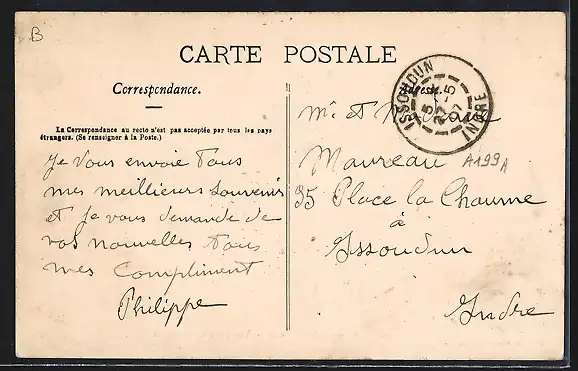 B
CARTE POSTALE
Correspondance.
Adresse.
La Correspondance au recto n'est pas acceptée par tous les pays
étrangers. (Se renseigner à la Poste.)
Je Vous envoie Tous
mes meillieurs Souvenirs
et Je vous demande de
vos nouvelles tous
mes Compliment
Philippe
ISSOUDUN
5
27-5
07
INDRE
Mr et
Maureau
A199A
35 Place la Chaume
à
Issoudun
Indre